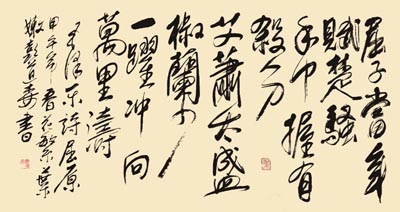 屈子當年
賦楚騷
手中握有
殺人刀
艾蕭太盛
椒蘭少
一躍冲向
萬里濤
毛澤東詩屈原
甲午年春
書